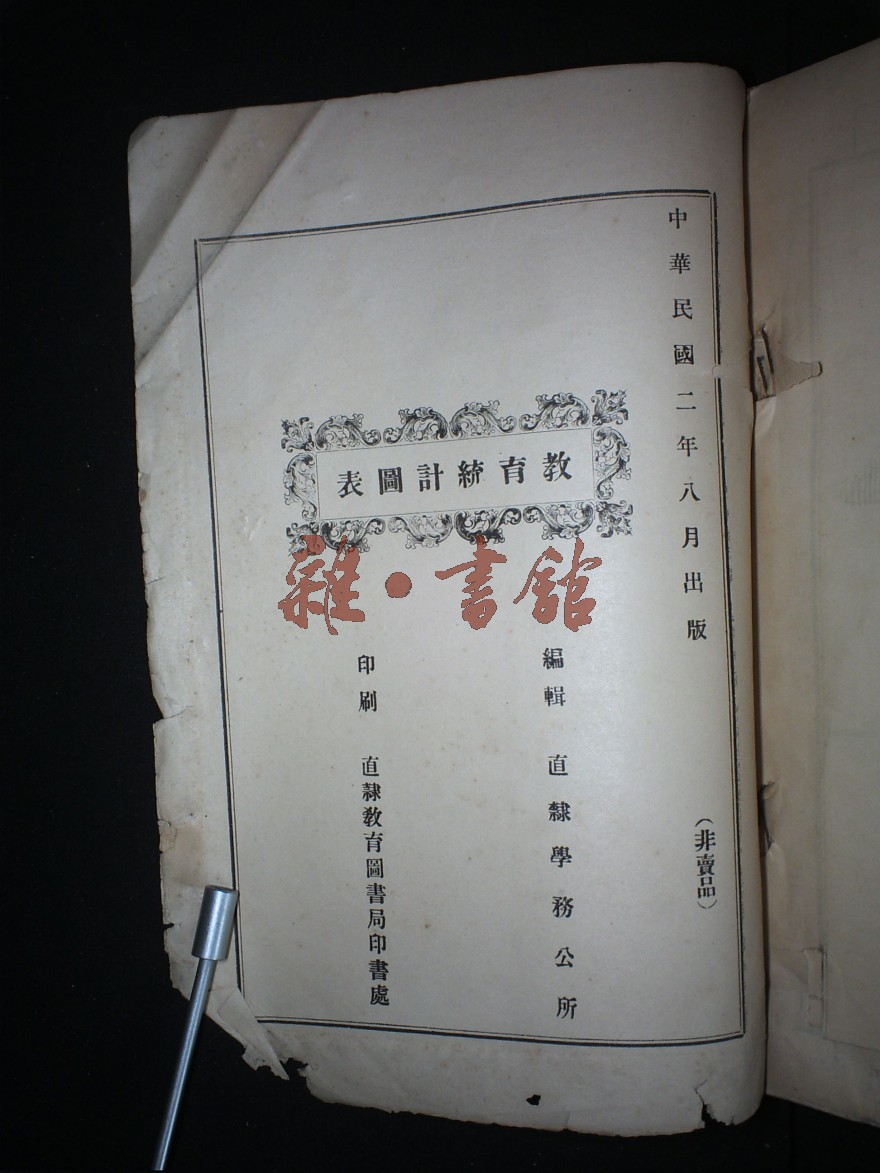 中華民國二年八月出版
(非賣品)
教育統計圖表
雜·書館
編輯 直隸學務公所
印刷 直隸教育圖書局印書處